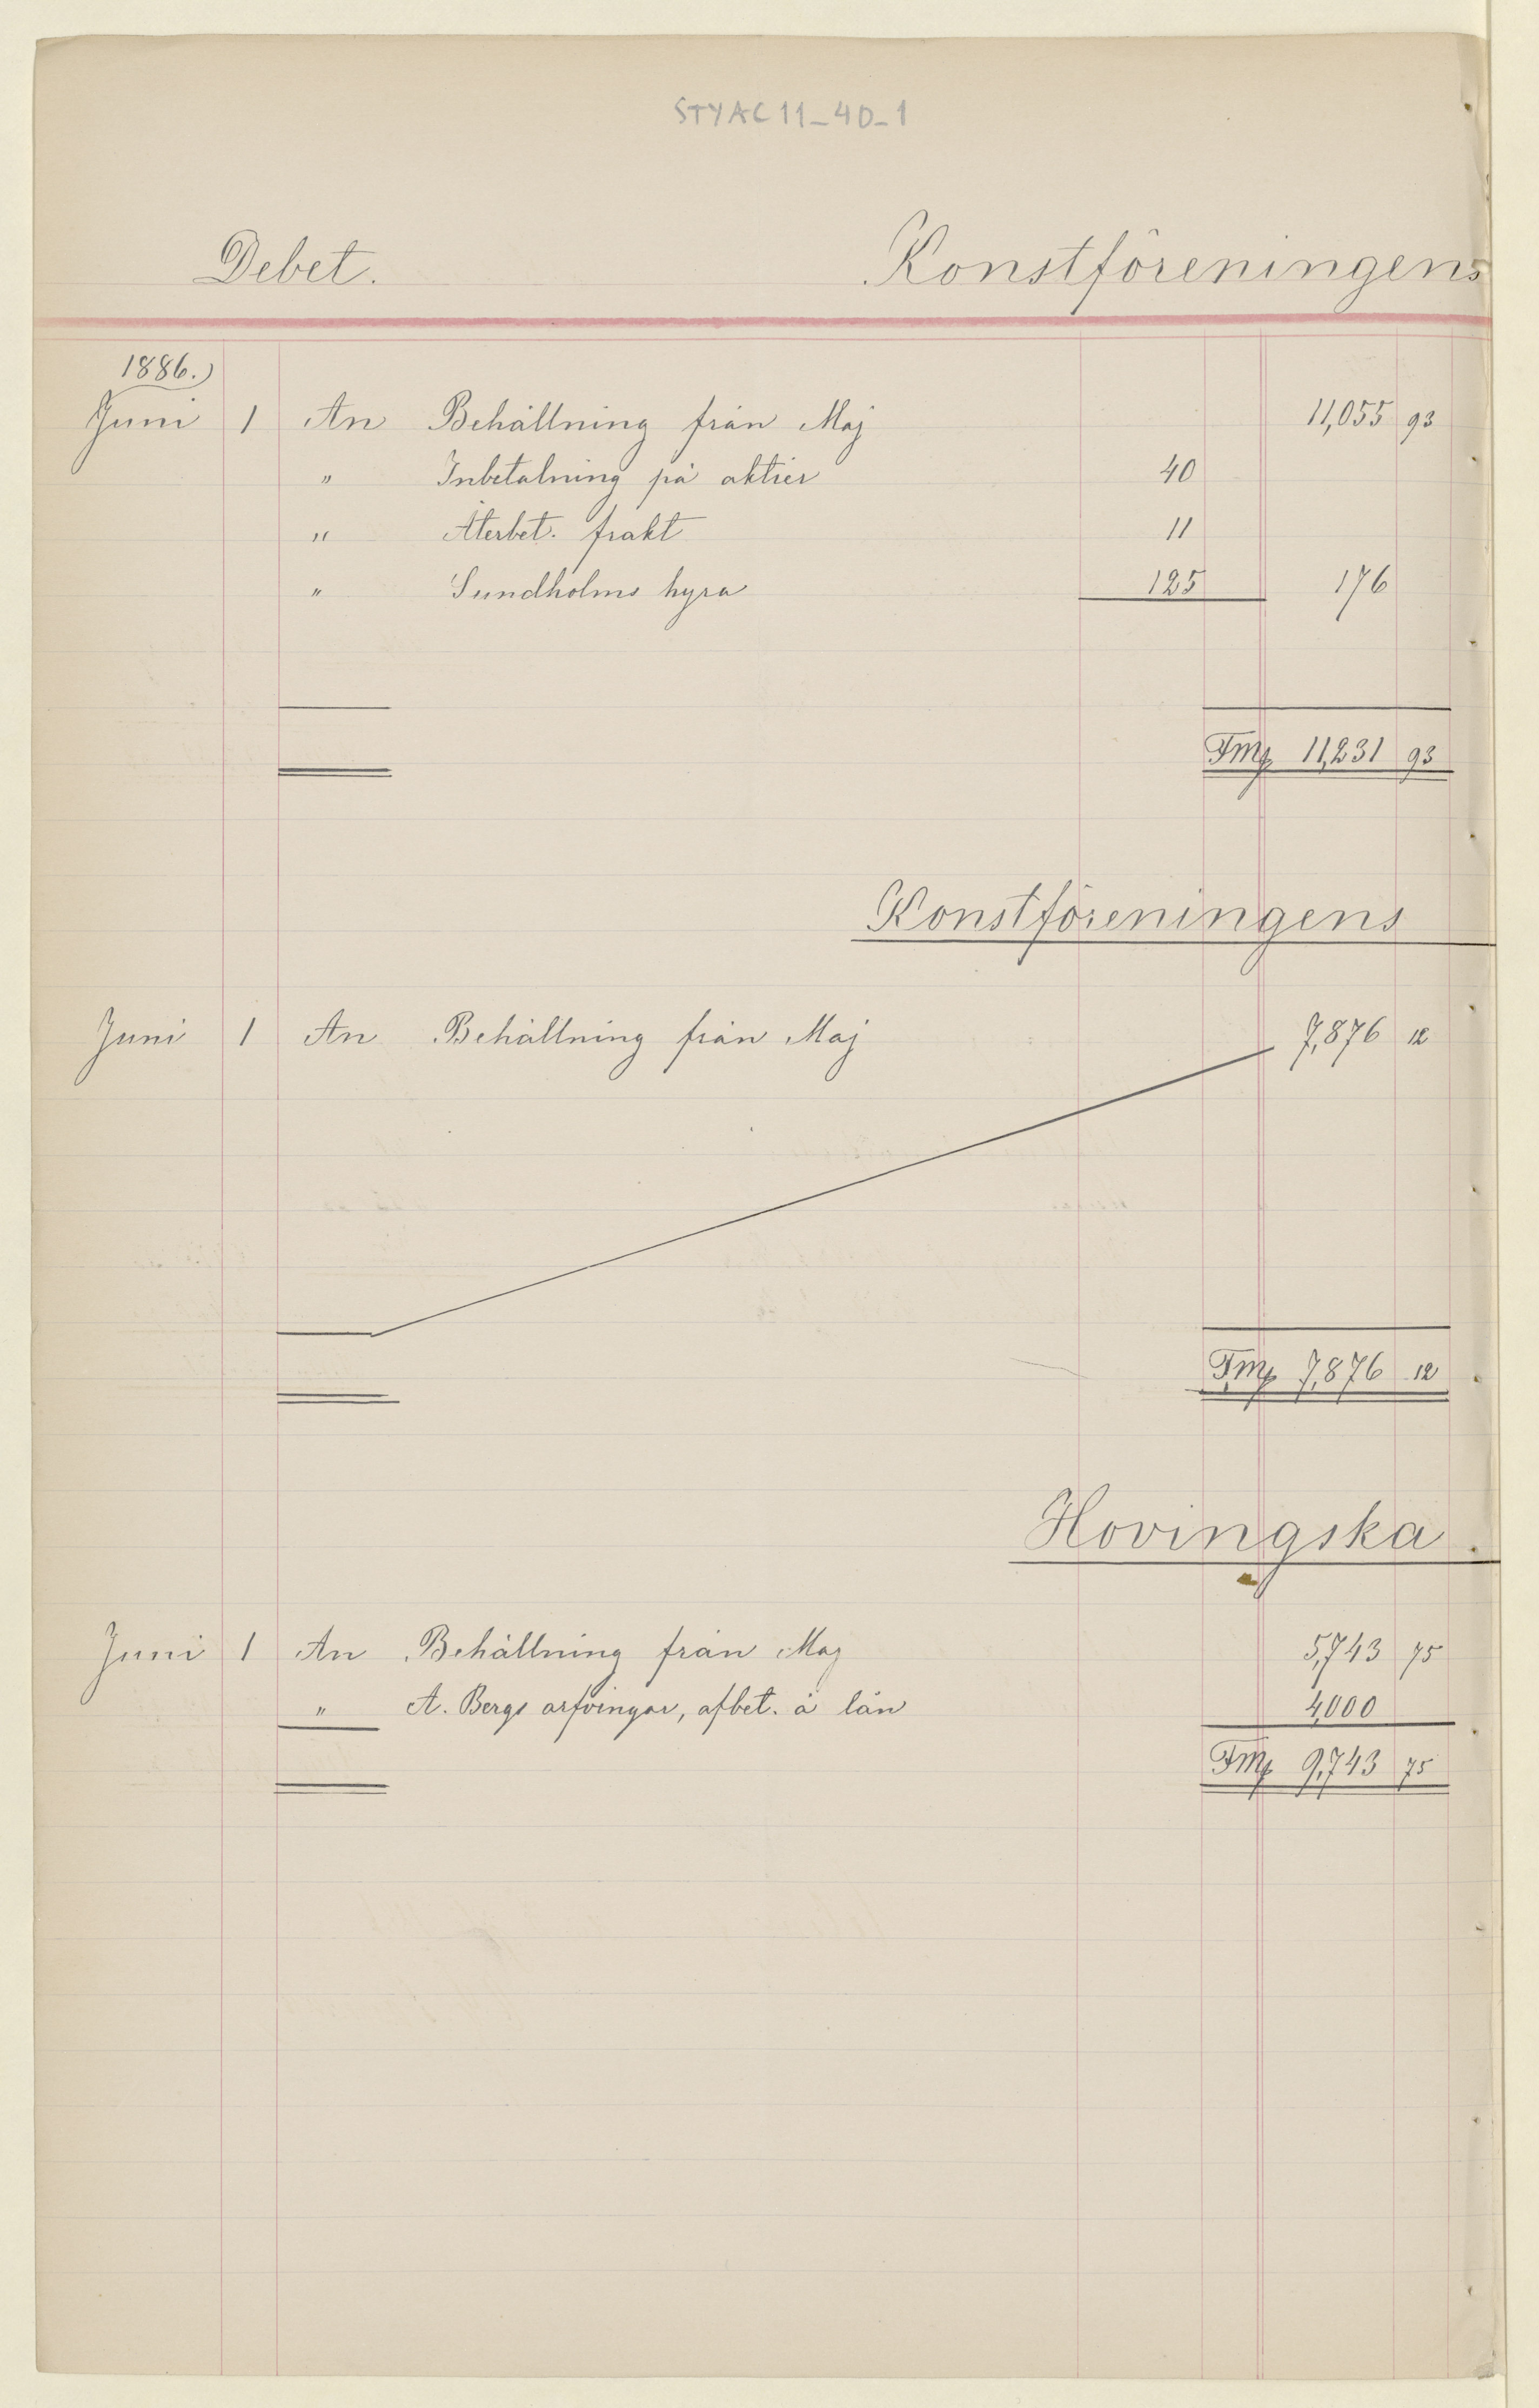 STYAC11_40_1
Debet. Konstföreningens
1886.
Juni 1 An Behållning från Maj 11,055 93
" Inbetalning på aktier 40
" Återbet. frakt 11
" Sundholms hyra 125 176
Fmk 11,231 93
Konstföreningens
Juni 1 An Behållning från Maj 7,876 12
Fmk 7,876 12
Hovingska
Juni 1 An Behållning från Maj 5,743 75
" A. Bergs arfvingar, afbet. å lån 4,000
Fmk 9,743 75